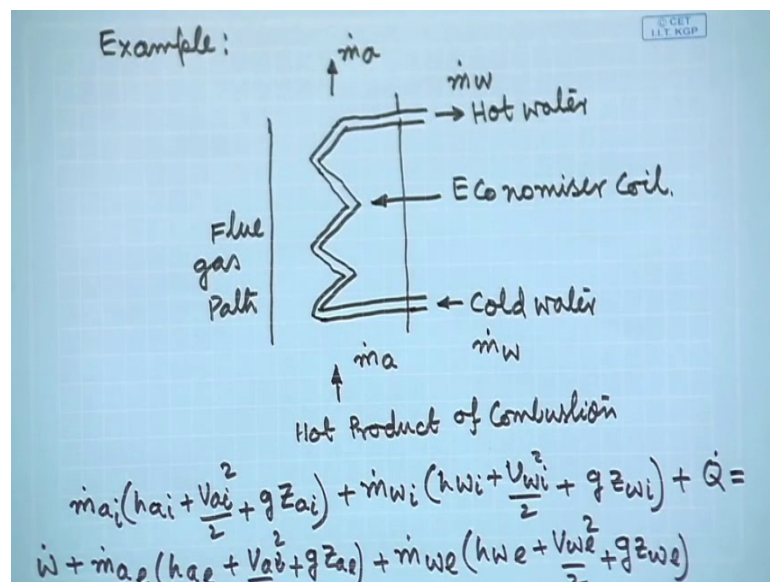 © CET
I.I.T. KGP
Example:
ṁa
ṁw
Hot water
Economiser Coil.
Flue
gas
Path
Cold water
ṁw
ṁa
Hot Product of Combustion
ṁai(hai + Vai²/2 + gZai) + ṁwi(hwi + Vwi²/2 + gZwi) + Q̇ =
ẇ + ṁae(hae + Vae²/2 + gZae) + ṁwe(hwe + Vwe²/2 + gZwe)